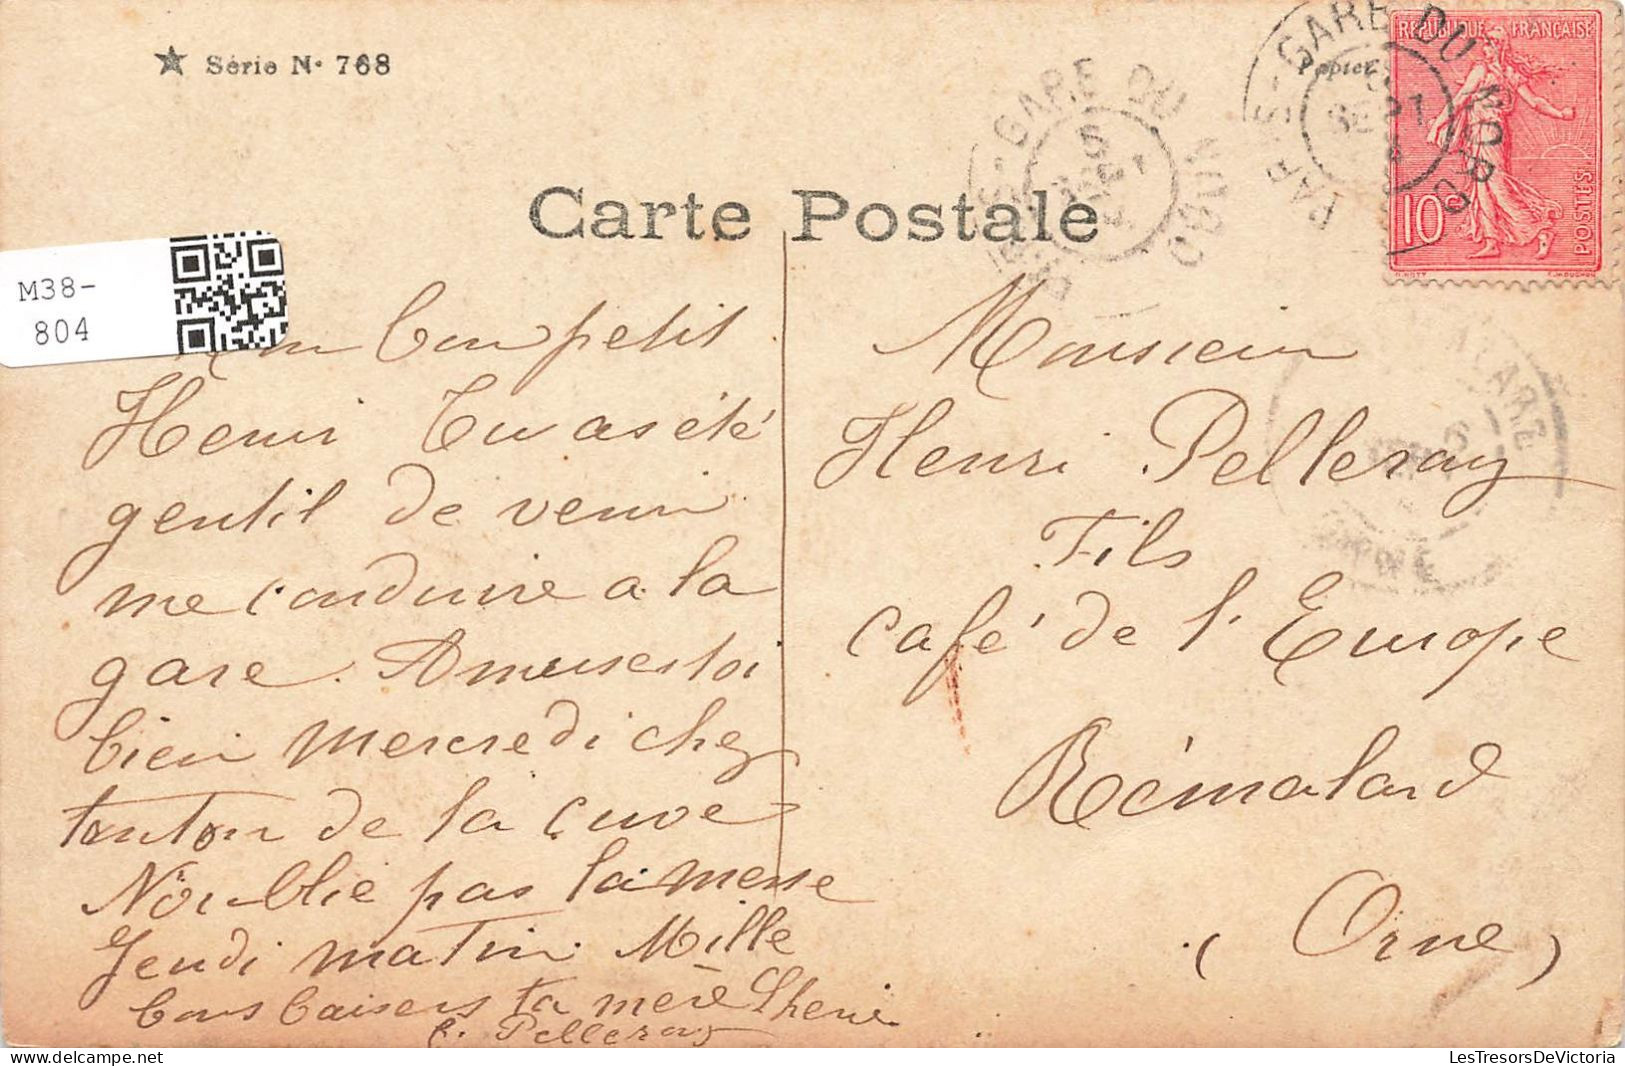 ★ Série N° 768
Papier
REPUBLIQUE FRANÇAISE
POSTES
10c
PARIS-GARE DU NORD
5
SEPT
PARIS-GARE DU NORD
SEPT
Carte Postale
M38-
804
Mon bon petit
Henri Tu as été
gentil de venir
me conduire a la
gare. Amuses toi
bien mercredi chez
tonton de la Cuve
N'oublie pas la messe
Jeudi matin Mille
bons baisers ta mère Cherie
C. Pelleray
Monsieur
Henri Pelleray
Fils
Café de l'Europe
Rémalard
(Orne)
LesTresorsDeVictoria